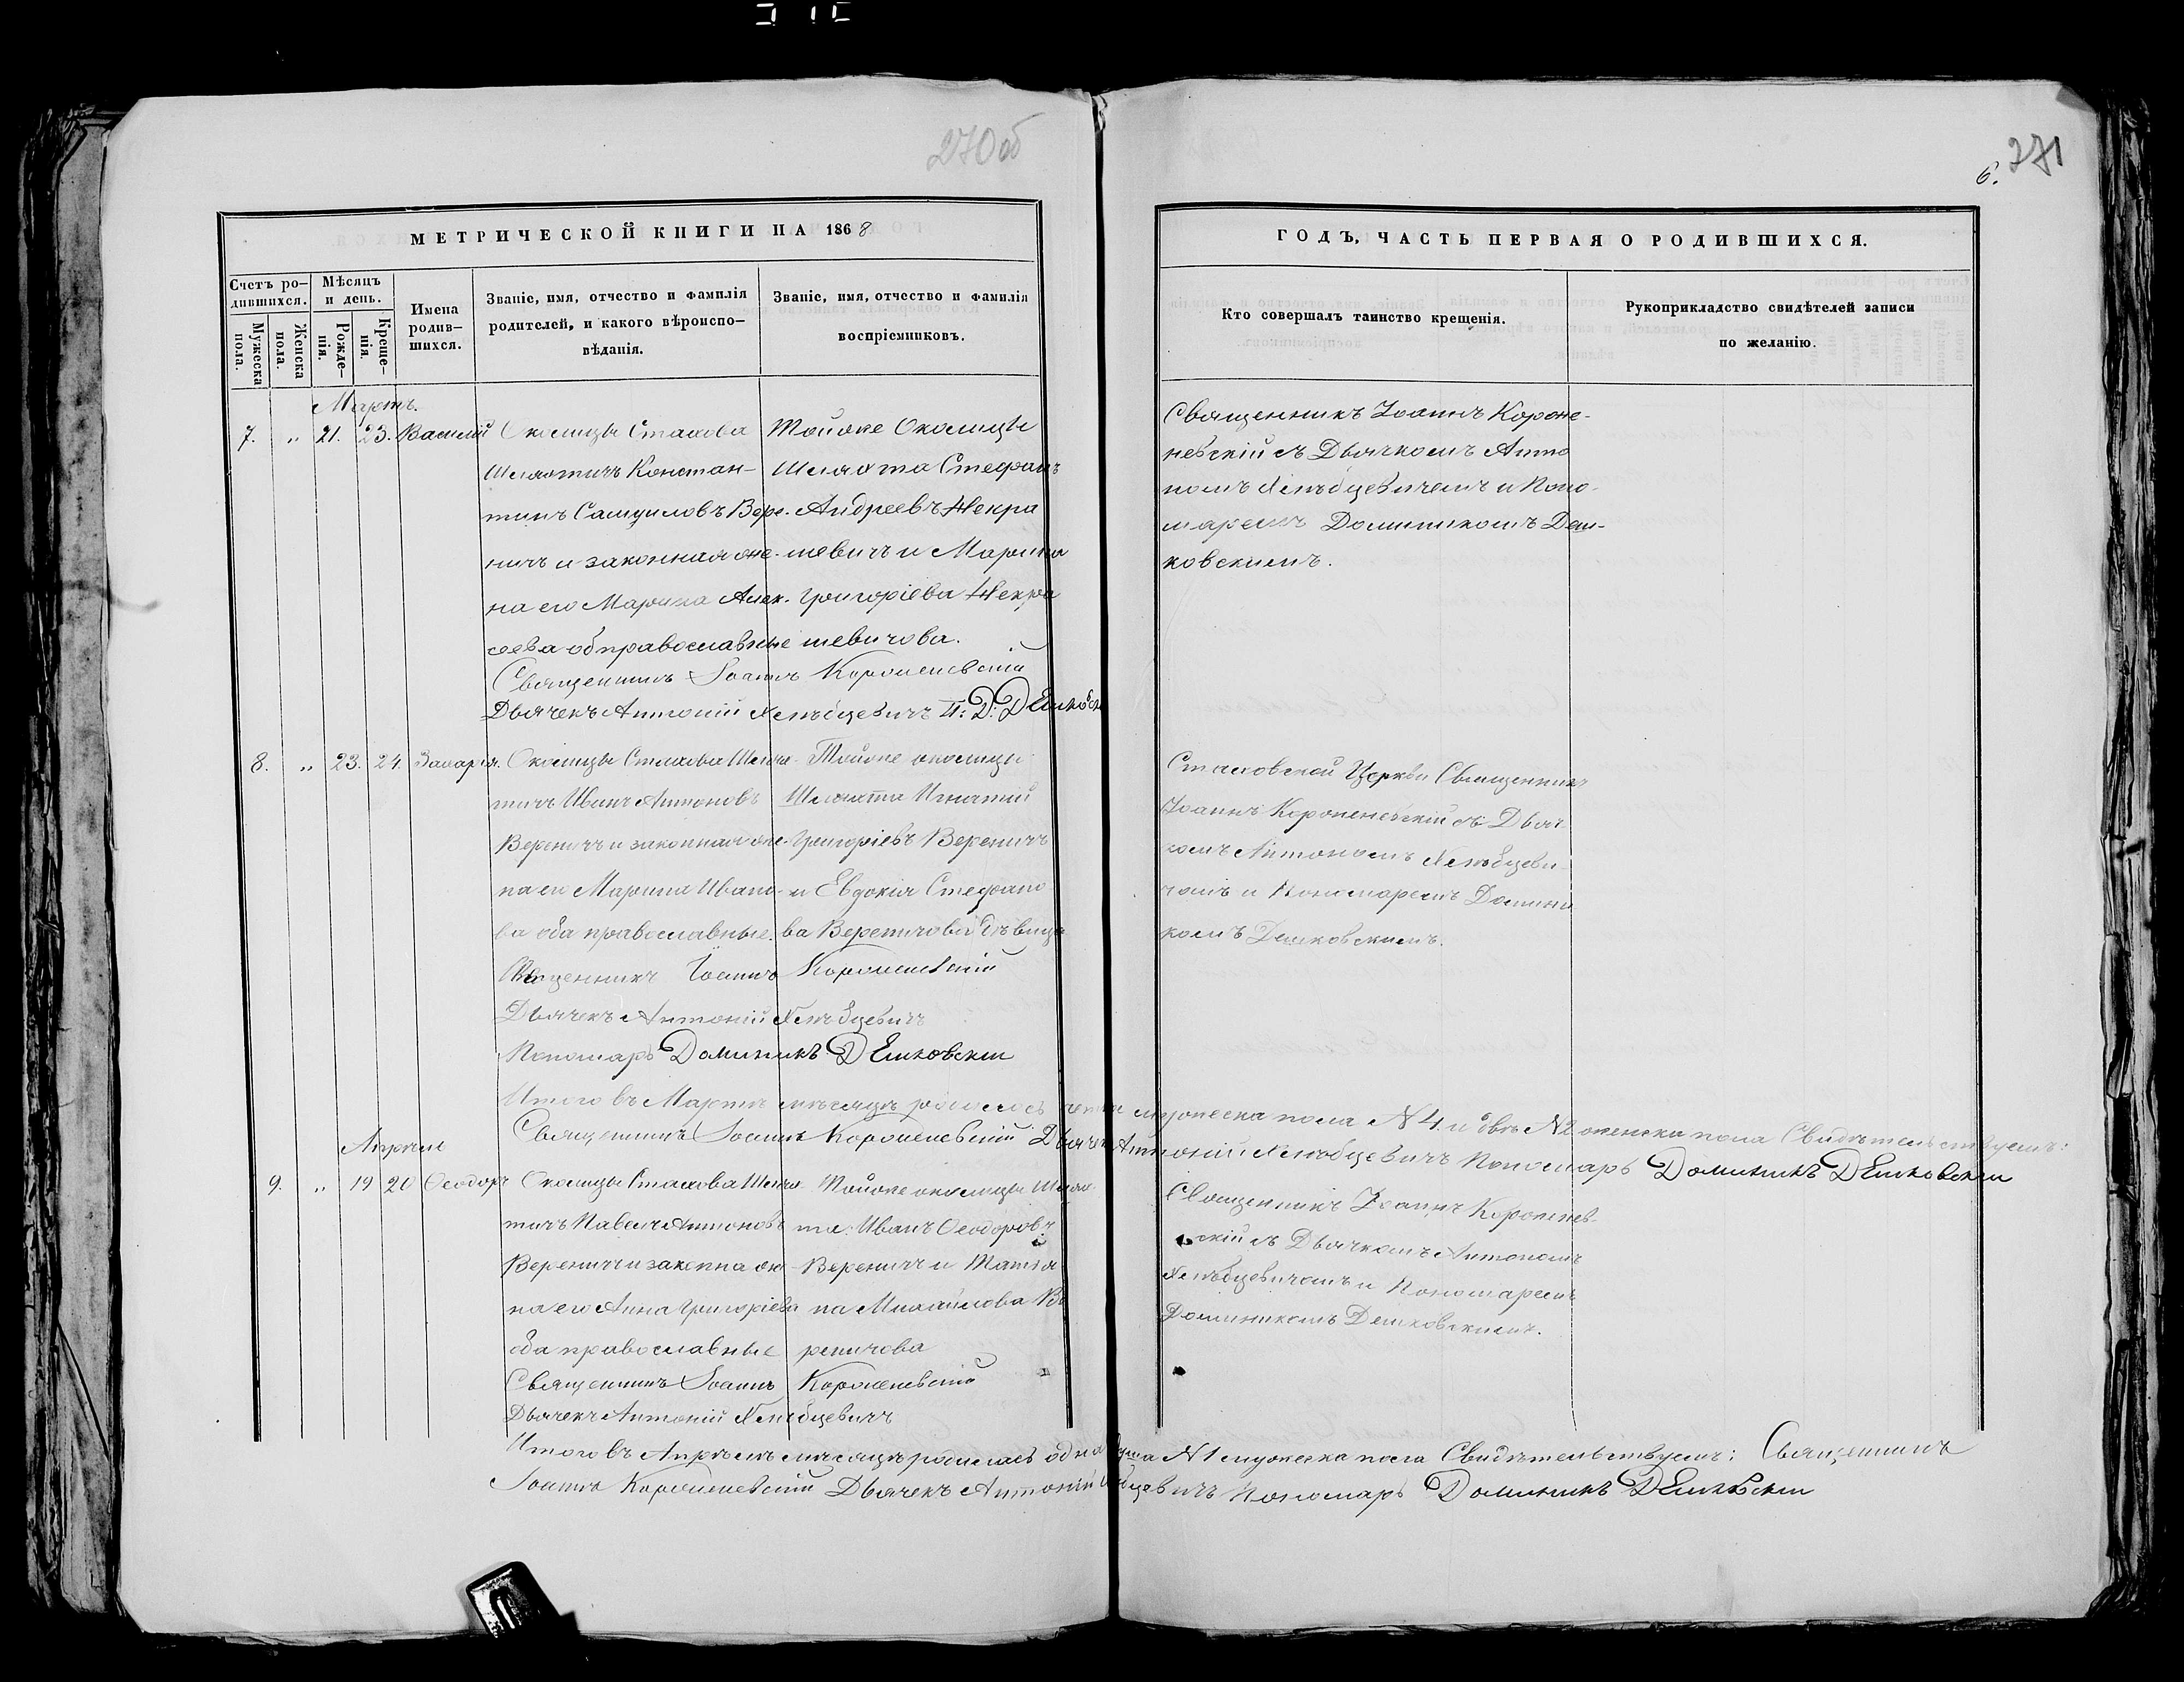 270 об
271
6.
МЕТРИЧЕСКОЙ КНИГИ НА 1868
ГОДЪ, ЧАСТЬ ПЕРВАЯ О РОДИВШИХСЯ.
Счетъ ро-
дившихся.
Мужеска
пола.
Женска
пола.
Мѣсяцъ
и день.
Рожде-
нія.
Креще-
нія.
Имена
родив-
шихся.
Званіе, имя, отчество и фамилія
родителей, и какого вѣроиспо-
вѣданія.
Званіе, имя, отчество и фамилія
воспріемниковъ.
Кто совершалъ таинство крещенія.
Рукоприкладство свидѣтелей записи
по желанію.
Мартъ.
7. „ 21. 23. Василій
Околицы Стахова
Шляхтичъ Констан-
тинъ Самуиловъ Вере-
ничъ и законная же-
на его Марина Алек-
сеева об православные
Тойже Околицы
Шляхта Стефанъ
Андреевъ Некра
шевичъ и Марина
Григоріева Некра
шевичова.
Священникъ Іоаннъ Короневскій
Дьячекъ Антоній Хлѣбцевичъ П: Д: Демковск
Священникъ Іоаннъ Короне-
невскій съ Дьячкомъ Анто
номъ Хлѣбцевичемъ и Поно-
маремъ Доминикомъ Дем-
ковскимъ.
8. „ 23. 24. Захарія.
Околицы Стахова Шлях-
тичъ Иванъ Антоновъ
Вереничъ и законная же-
на его Марина Ивано-
ва оба православные.
Тойже околицы
Шляхта Игнатій
Григоріевъ Вереничъ
и Евдокія Стефано
ва Вереничова дѣвица
Священникъ Іоаннъ Короневскій
Дьячекъ Антоній Хлѣбцевичъ
Пономарь Доминикъ Демковскій
Стаховской Церкви Священникъ
Іоаннъ Короневскій съ Дьяч-
комъ Антономъ Хлѣбцеви-
чомъ и Пономаремъ Домини
комъ Демковскимъ.
Итого въ Мартѣ мѣсяцѣ родилось мужеска пола N 4. и двѣ N 2 женска пола Свидѣтельствуемъ:
Священникъ Іоаннъ Короневскій Дьячекъ Антоній Хлѣбцевичъ Пономарь Доминикъ Демковскій
Апрѣль
9. „ 19 20 Ѳеодоръ
Околицы Стахова Шлях-
тичъ Павелъ Антоновъ
Вереничъ и законна же
на его Анна Григоріева
оба православные
Тойже околицы Шлях
та: Иванъ Ѳеодоровъ
Вереничъ и Татья
на Михайлова Ве
реничова
Священникъ Іоаннъ Короневскій
Дьячекъ Антоній Хлѣбцевичъ
Священникъ Іоаннъ Короненев-
скій съ Дьячкомъ Антономъ
Хлѣбцевичомъ и Пономаремъ
Доминикомъ Демковскимъ.
Итого въ Апрѣлѣ мѣсяцѣ родилась одна душа N 1 мужеска пола Свидѣтельствуемъ: Священникъ
Іоаннъ Короневскій Дьячекъ Антоній Хлѣбцевичъ Пономарь Доминикъ Демковскій